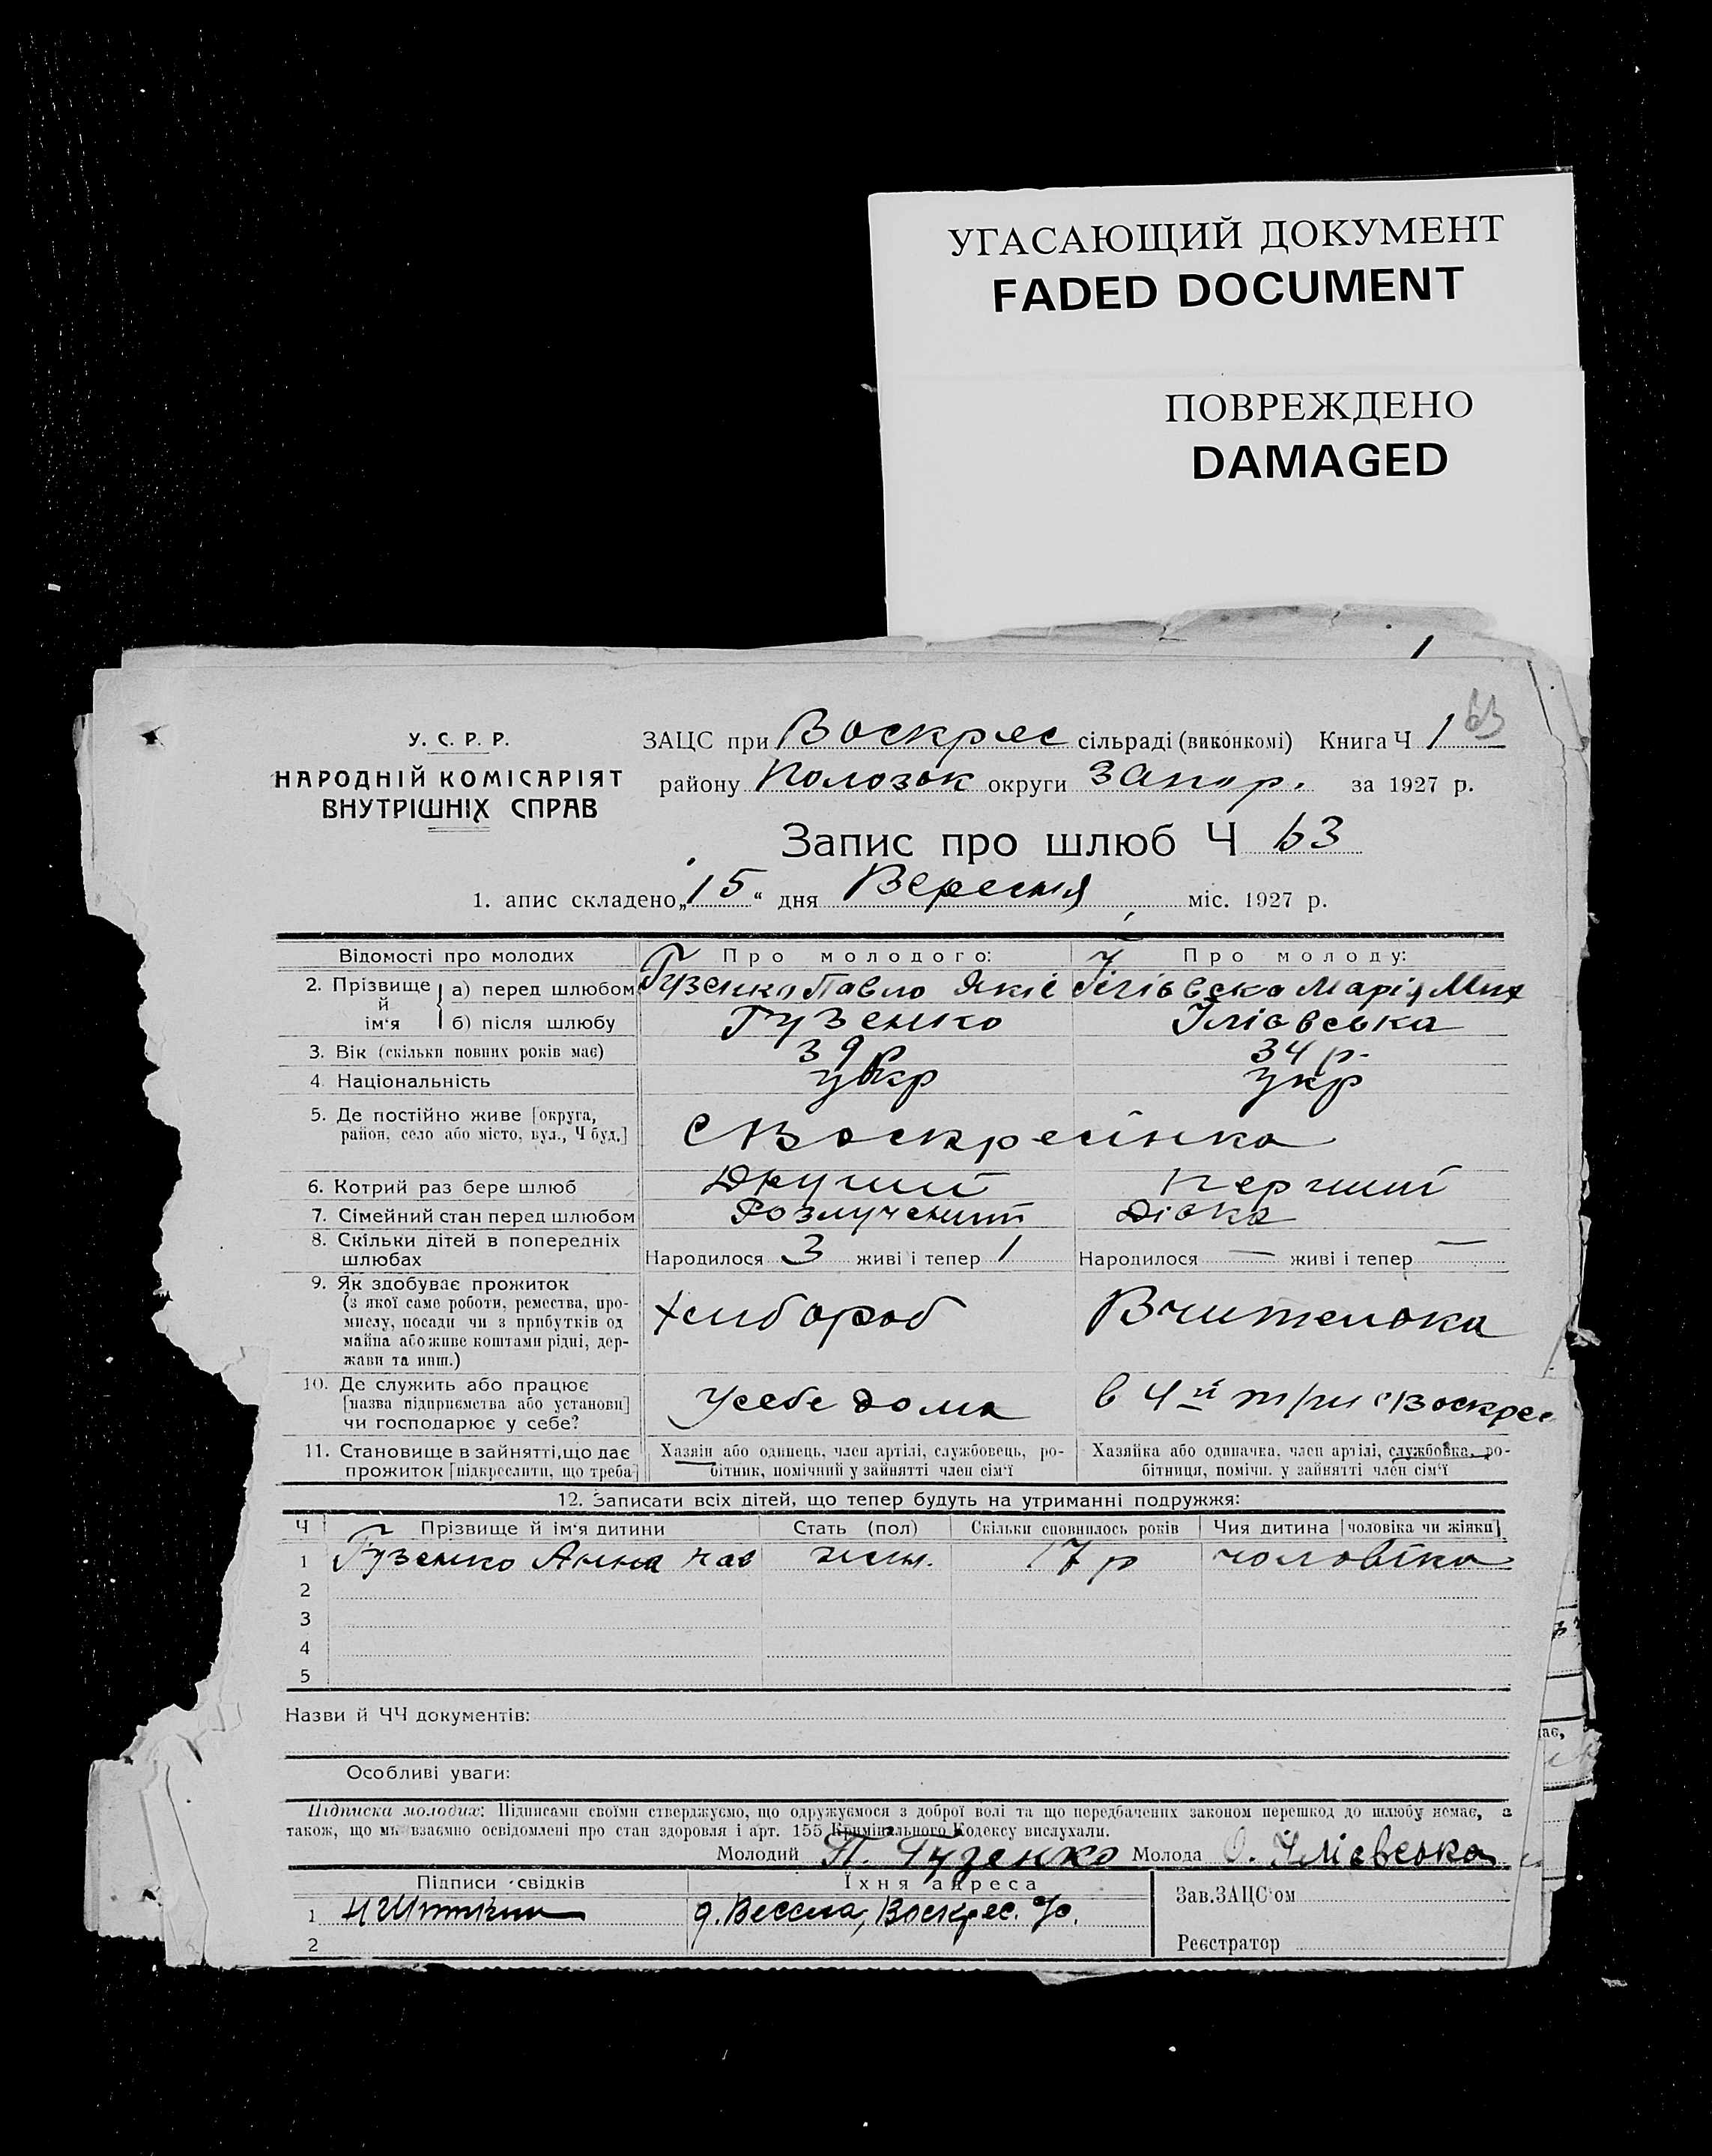 УГАСАЮЩИЙ ДОКУМЕНТ
FADED DOCUMENT
ПОВРЕЖДЕНО
DAMAGED
63
У. С. Р. Р.
НАРОДНІЙ КОМІСАРІЯТ
ВНУТРІШНІХ СПРАВ
ЗАЦС при Воскрес сільраді (виконкомі) Книга Ч 1
району Полозьк округи Запор. за 1927 р.
Запис про шлюб Ч 63
1. апис складено „15“ дня Вересня міс. 1927 р.
Відомості про молодих Про молодого: Про молоду:
2. Прізвище й ім‘я а) перед шлюбом Гузенко Павло Якіє Ілієвська Марія Мих
б) після шлюбу Гузенко Ілієвська
3. Вік (скільки повних років має) 39 р 34 р.
4. Національність укр укр
5. Де постійно живе [округа,
район, село або місто, вул., Ч буд.] С Воскресінка
6. Котрий раз бере шлюб Другий Перший
7. Сімейний стан перед шлюбом Розлучений Дівка
8. Скільки дітей в попередніх
шлюбах Народилося 3 живі і тепер 1 Народилося — живі і тепер —
9. Як здобуває прожиток
(з якої саме роботи, ремества, про-
мислу, посади чи з прибутків од
майна або живе коштами рідні, дер-
жави та инш.) Хлибороб Вчителька
10. Де служить або працює
[назва підприємства або установи]
чи господарює у себе? У себе дома в 4й тр/ш с Воскрес
11. Становище в зайнятті, що дає
прожиток [підкреслити, що треба]
Хазяїн або одинець, член артілі, службовець, ро-
бітник, помічний у зайнятті член сім‘ї
Хазяйка або одиначка, член артілі, службовка, ро-
бітниця, помічн. у зайнятті член сім‘ї
12. Записати всіх дітей, що тепер будуть на утриманні подружжя:
Ч Прізвище й ім‘я дитини Стать (пол) Скільки сповнилось років Чия дитина [чоловіка чи жінки]
1 Гузенко Анна Пав жен. 17 р чоловіка
2
3
4
5
Назви й ЧЧ документів:
Особливі уваги:
Підписка молодих: Підписами своїми стверджуємо, що одружуємося з доброї волі та що передбачених законом перешкод до шлюбу немає, а
також, що ми взаємно освідомлені про стан здоровля і арт. 155 Кримінального Кодексу вислухали.
Молодий П. Гузенко Молода О. Ілієвська
Підписи свідків Їхня адреса
1 д. Весела, Воскрес. с/р.
2
Зав. ЗАЦС‘ом
Реєстратор